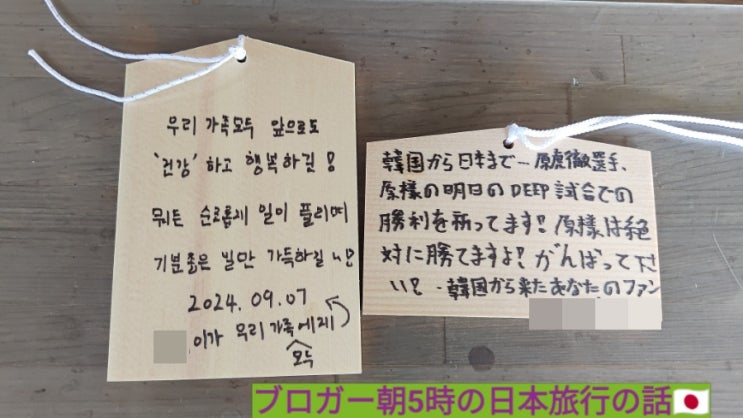 우리 가족모두 앞으로도
'건강' 하고 행복하길!
뭐든 순조롭게 일이 풀리며
기분좋은 일만 가득하길 ㅂㅂ?
2024.09.07
이가 우리 가족에게
모두
韓国から日本まで… 原虎徹選手、
原様の明日の DEEP 試合での
勝利を祈ってます! 原様は絶
対に勝てますよ! がんばって下さ
い! - 韓国から来たあなたのファン
ブロガー朝5時の日本旅行の話🇯🇵